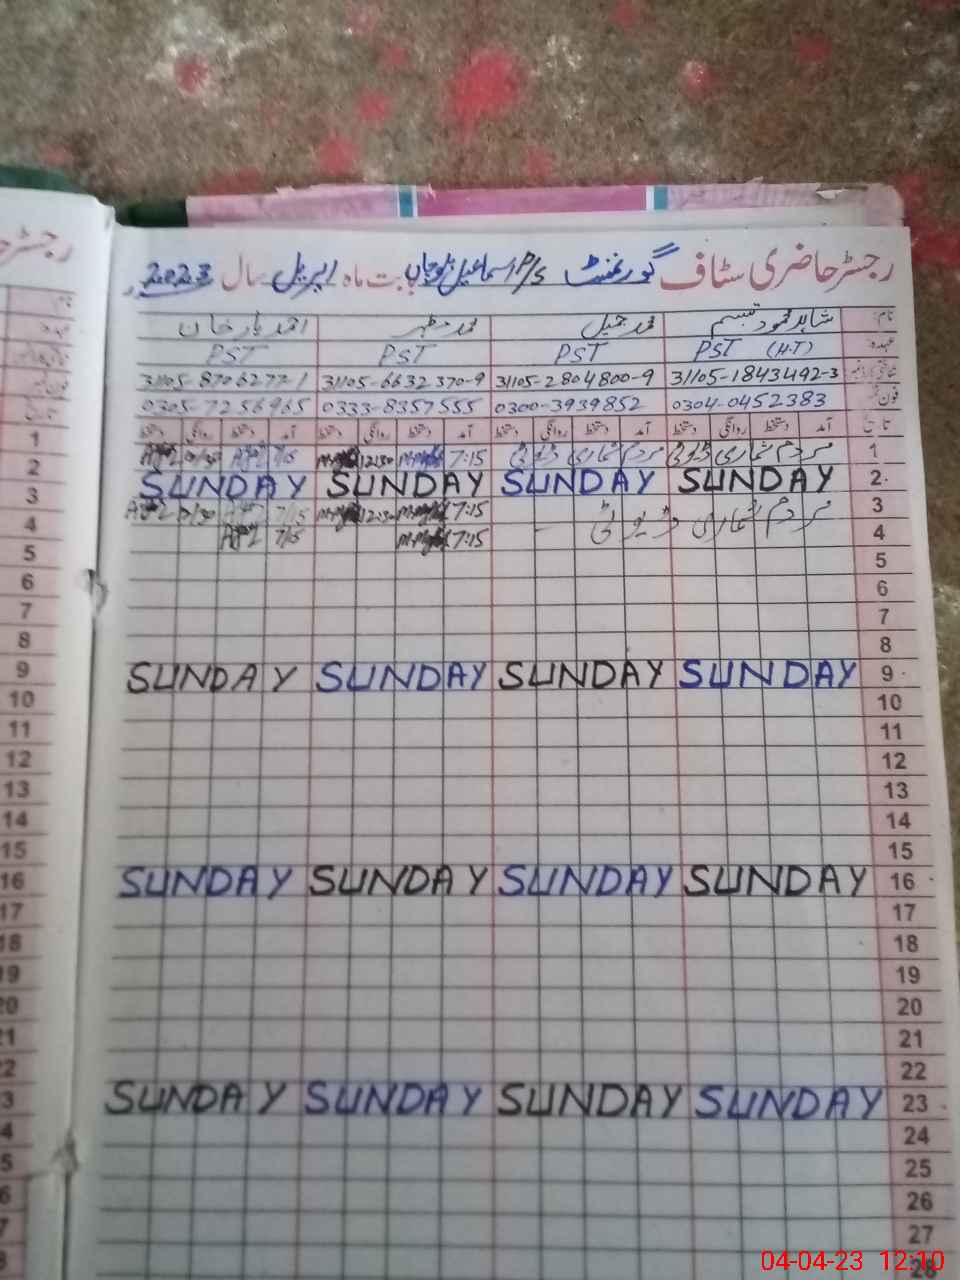 رجسٹر حاضری سٹاف گورنمنٹ P/S اسماعیل بابت ماہ اپریل سال 2023
نام: شاہد محمود تبسم محمد جمیل محمد مظہر احمد یار خان
عہدہ: PST (H.T) PST PST PST
31105-1843492-3 31105-2804800-9 31105-6632370-9 31105-8706277-1
فون نمبر 0304-0452383 0300-3939852 0333-8357555 0305-7256965
تاریخ آمد دستخط روانگی دستخط آمد دستخط روانگی دستخط آمد دستخط روانگی دستخط آمد دستخط روانگی دستخط
1 مردم شماری ڈیوٹی مردم شماری ڈیوٹی 7:15 12:30 7/15 12/30
2 SUNDAY SUNDAY SUNDAY SUNDAY
3 مردم شماری ڈیوٹی 7:15 12:30 7/15 12/30
4 7:15 7/15
5
6
7
8
9 SUNDAY SUNDAY SUNDAY SUNDAY
10
11
12
13
14
15
16 SUNDAY SUNDAY SUNDAY SUNDAY
17
18
19
20
21
22
23 SUNDAY SUNDAY SUNDAY SUNDAY
24
25
26
27
28
04-04-23 12:10